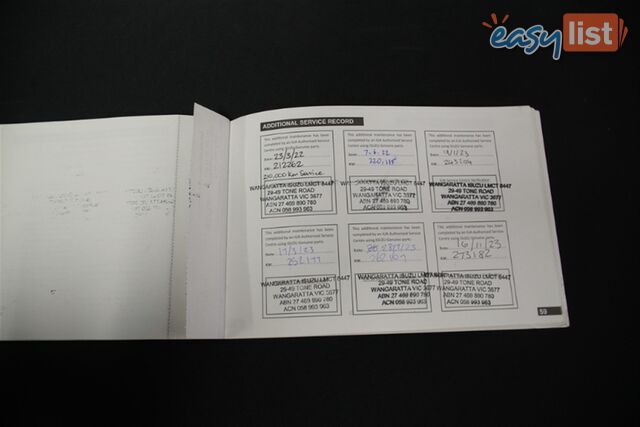 easylist
ADDITIONAL SERVICE RECORD
This additional maintenance has been
completed by an IUA Authorised Service
Centre using ISUZU Genuine parts.
Date: 23/3/22
KM: 212262
210,000 Km Service
WANGARATTA ISUZU LMCT 8447
29-49 TONE ROAD
WANGARATTA VIC 3677
ABN 27 469 890 780
ACN 058 993 963
This additional maintenance has been
completed by an IUA Authorised Service
Centre using ISUZU Genuine parts.
Date: 7-6-22
KM: 220,118
29-49 TONE ROAD
WANGARATTA VIC 3677
ABN 27 469 890 780
ACN 058 993 963
This additional maintenance has been
completed by an IUA Authorised Service
Centre using ISUZU Genuine parts.
KM:
WANGARATTA ISUZU LMCT 8447
29-49 TONE ROAD
WANGARATTA VIC 3677
ABN 27 469 890 780
ACN 058 993 963
This additional maintenance has been
completed by an IUA Authorised Service
Centre using ISUZU Genuine parts.
Date:
KM: 252177
WANGARATTA ISUZU LMCT 8447
29-49 TONE ROAD
WANGARATTA VIC 3677
ABN 27 469 890 780
ACN 058 993 963
This additional maintenance has been
completed by an IUA Authorised Service
Centre using ISUZU Genuine parts.
Date:
KM:
WANGARATTA ISUZU LMCT 8447
29-49 TONE ROAD
WANGARATTA VIC 3677
ABN 27 469 890 780
ACN 058 993 963
This additional maintenance has been
completed by an IUA Authorised Service
Centre using ISUZU Genuine parts.
Date: 16/11/23
KM: 273182
WANGARATTA ISUZU LMCT 8447
29-49 TONE ROAD
WANGARATTA VIC 3677
ABN 27 469 890 780
ACN 058 993 963
59